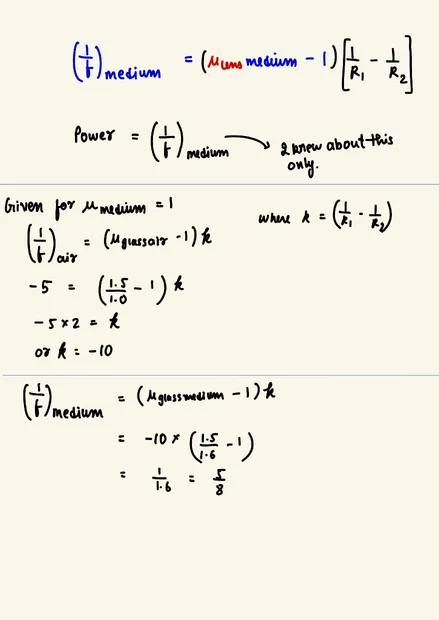 (1/f) medium = (μ lens medium - 1) [1/R₁ - 1/R₂]
Power = (1/f) medium → I knew about this
only.
Given for μ medium = 1 where k = (1/R₁ - 1/R₂)
(1/f) air = (μ glass air - 1) k
-5 = (1.5/1.0 - 1) k
-5 × 2 = k
or k = -10
(1/f) medium = (μ glass medium - 1) k
= -10 × (1.5/1.6 - 1)
= 1/1.6 = 5/8